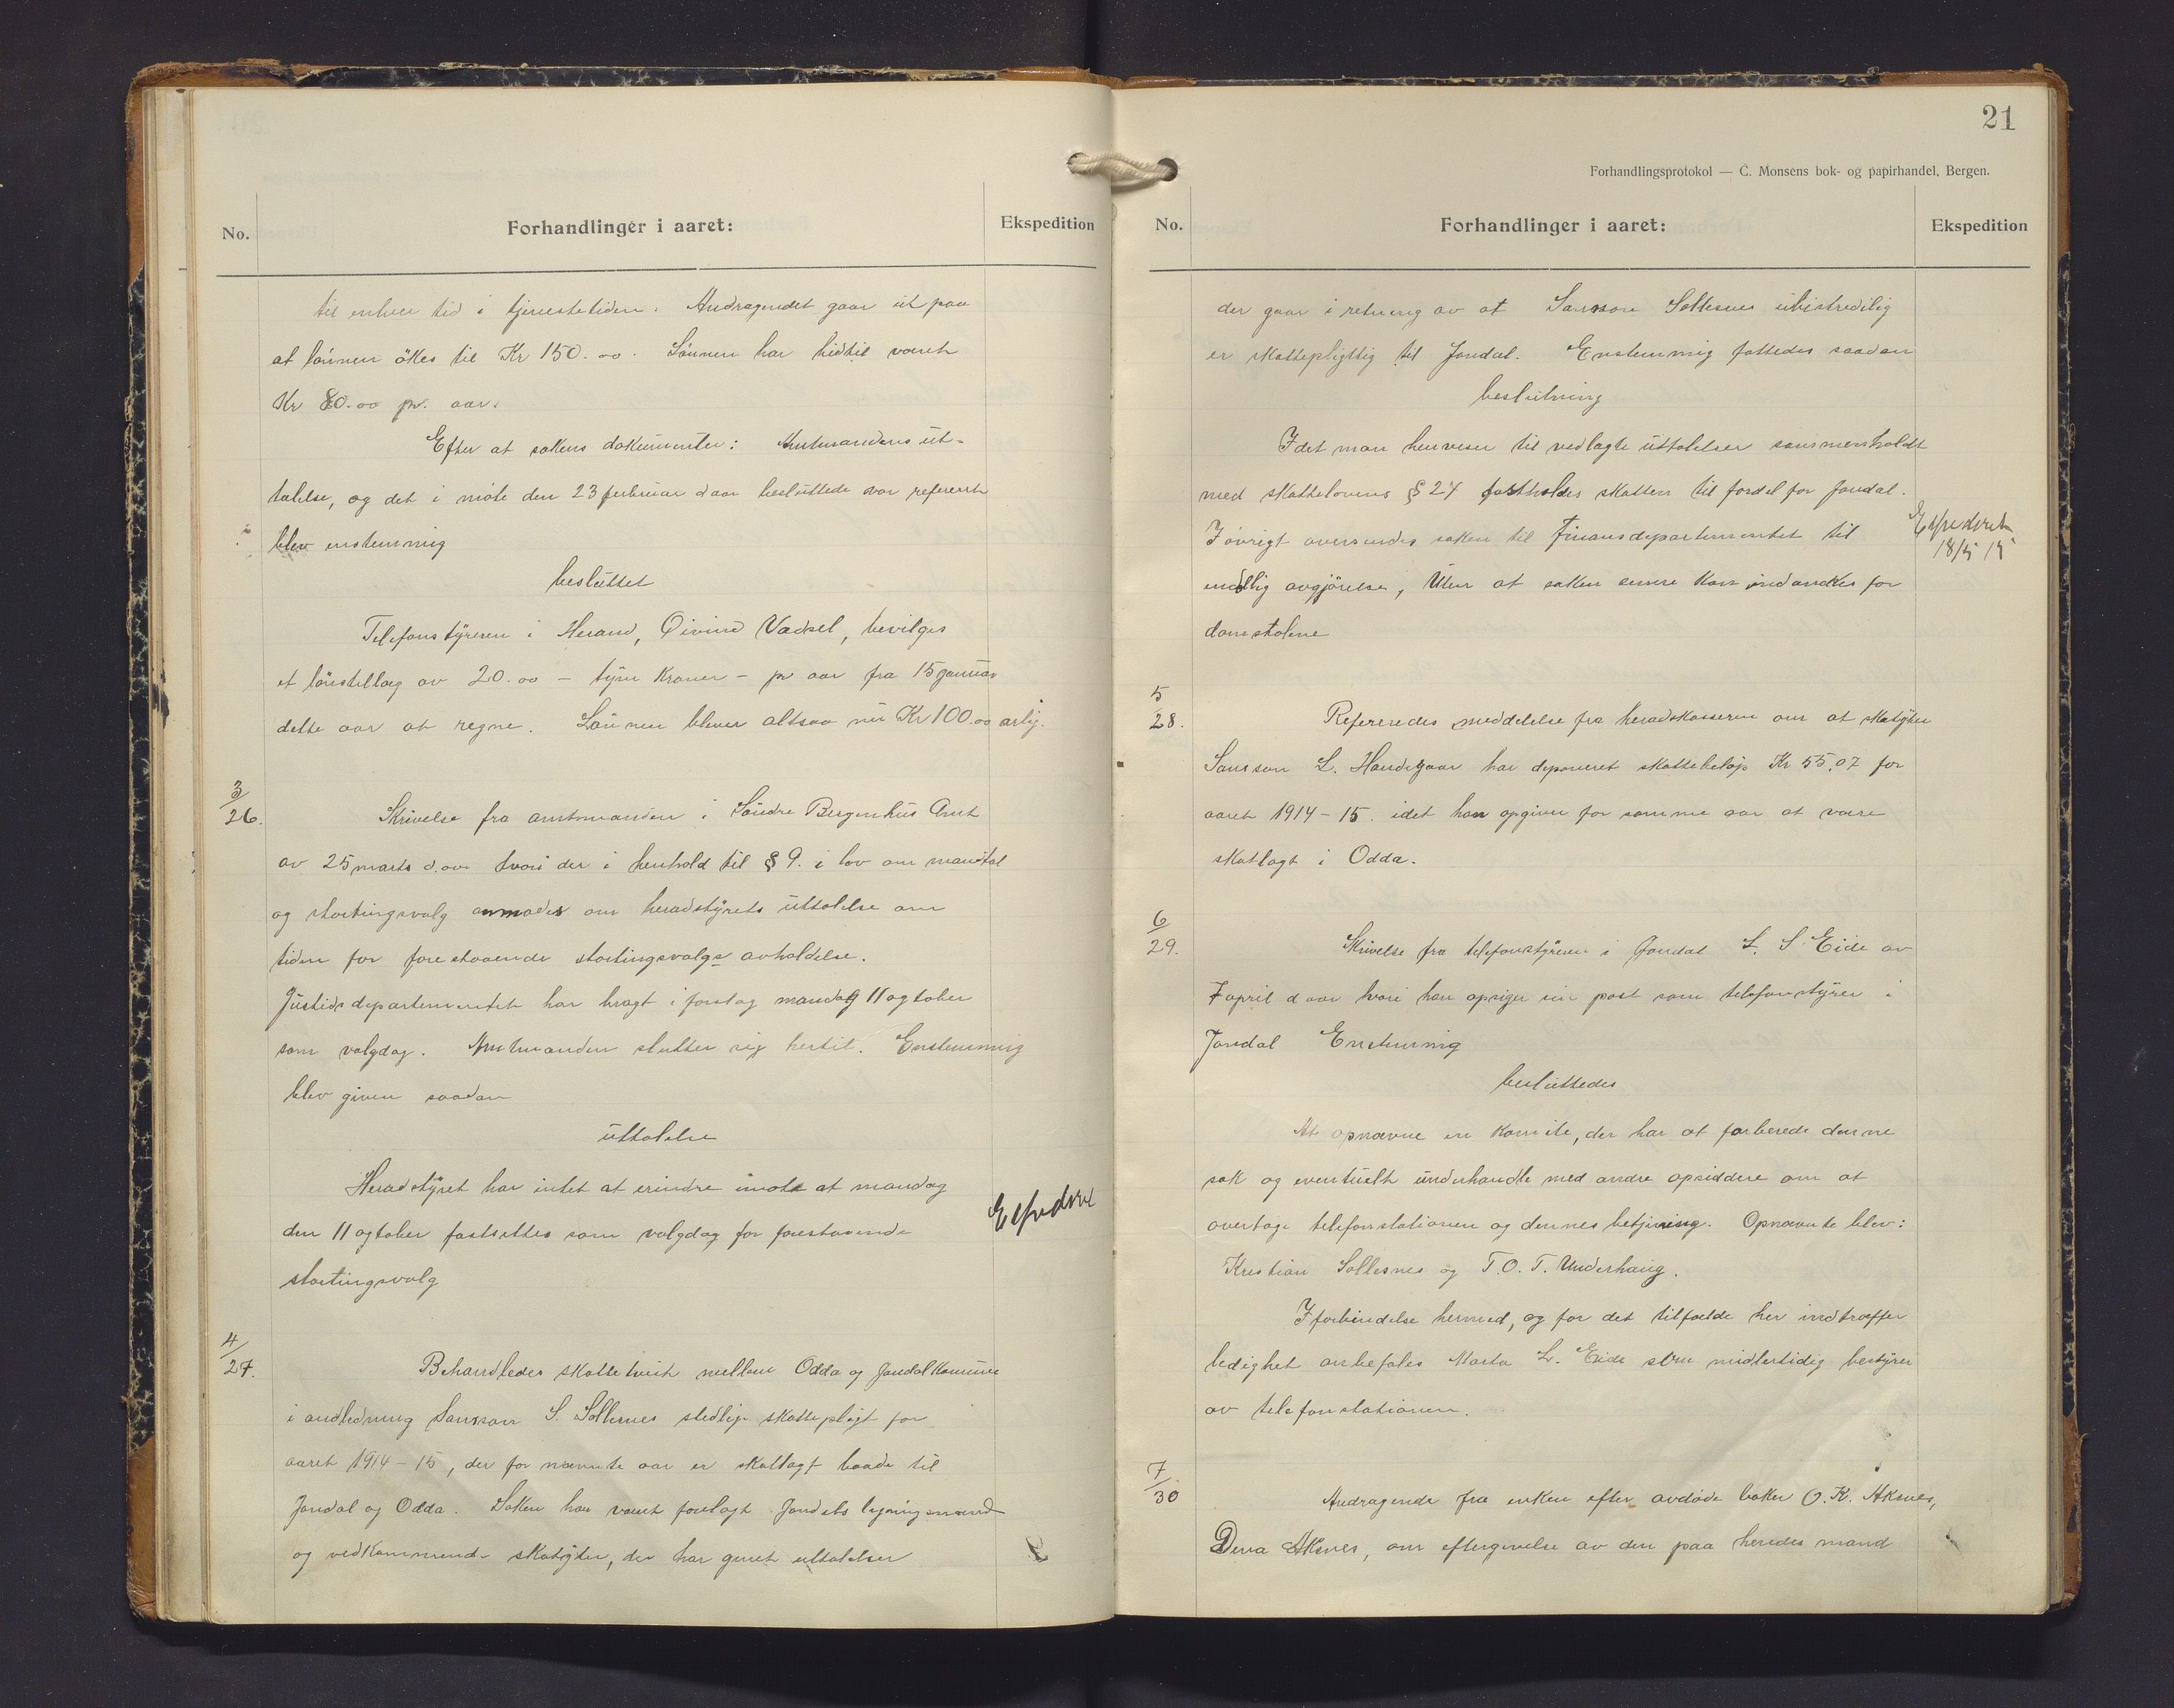 No.
Forhandlinger i aaret:
Ekspedition
til enhver tid i tjenestetiden. Andragendet gaar ut paa
at lønnen økes til Kr 150.00. Lønnen har hidtil været
Kr 80.00 pr. aar.
Efter at sakens dokumenter: Amtmandens ut-
talelse, og det i møte den 23 februar d aar besluttede var referert
blev enstemmig
besluttet
Telefonstyreren i Herand, Øivind Vadsel, bevilges
et lønstillæg av 20.00 – tyve Kroner – pr aar fra 15 januar
dette aar at regne. Lønnen bliver altsaa nu Kr 100.00 arlig.
3/26.
Skrivelse fra amtmanden i Søndre Bergenhus Amt
av 25 marts d.aar hvori der i henhold til § 9. i lov om mandtal
og stortingsvalg anmodes om heradstyrets uttalelse om
tiden for forestaaende stortingsvalgs avholdelse.
Justisdepartementet har bragt i forslag mandag 11 ogtober
som valgdag. Amtmanden slutter sig hertil. Enstemmig
blev given saadan
uttalelse
Heradstyret har intet at erindre imote at mandag
den 11 ogtober fastsættes som valgdag for forestaaende
stortingsvalg
Expedert
4/27.
Behandledes skattetvist mellem Odda og Jondal Kommune
i andledning Samson S. Sollesnes stedlige skattepligt for
aaret 1914–15, der for nævnte aar er skatlagt baade til
Jondal og Odda. Saken har været forelagt Jondals ligningsmænd
og vedkommende skatyter, der har gieret uttalelser
21
Forhandlingsprotokol — C. Monsens bok- og papirhandel, Bergen.
No.
Forhandlinger i aaret:
Ekspedition
der gaar i retning av at Samson Sollesnes ubistredilig
er skattepligtig til Jondal. Enstemmig fattedes saadan
beslutning
Idet man henviser til vedlagte uttalelser sammenholdt
med skattelovens § 27 fastholdes skatten til fordel for Jondal.
Iøvrigt oversendes saken til Finansdepartementet til
endelig avgjørelse, Uten at saken senere kan indankes for
domstolene
Expedert
18/5 15
5/28.
Refereredes meddelelse fra heradskasseren om at skatyter
Samson L. Handegaar har deponeret skattebeløp Kr 55,07 for
aaret 1914–15. idet han opgiver for samme aar at være
skatlagt i Odda.
6/29.
Skrivelse fra telefonstyreren i Jondal L. S. Eide av
7 april d aar hvori han opsiger sin post som telefonstyrer i
Jondal Enstemmig
besluttedes
At opnævne en Komite, der har at forberede denne
sak og eventuelt underhandle med andre opsiddere om at
overtage telefonstationen og dennes betjening. Opnævnte blev:
Kristian Sollesnes og T.O.T. Underhaug.
I forbindelse hermed, og for det tilfælde her indtræffer
ledighet anbefales Marta L. Eide som midlertidig bestyrer
av telefonstationen.
7/30
Andragende fra enken efter avdøde baker O. K. Aksnes,
Dina Aksnes, om eftergivelse av den paa heredes mand